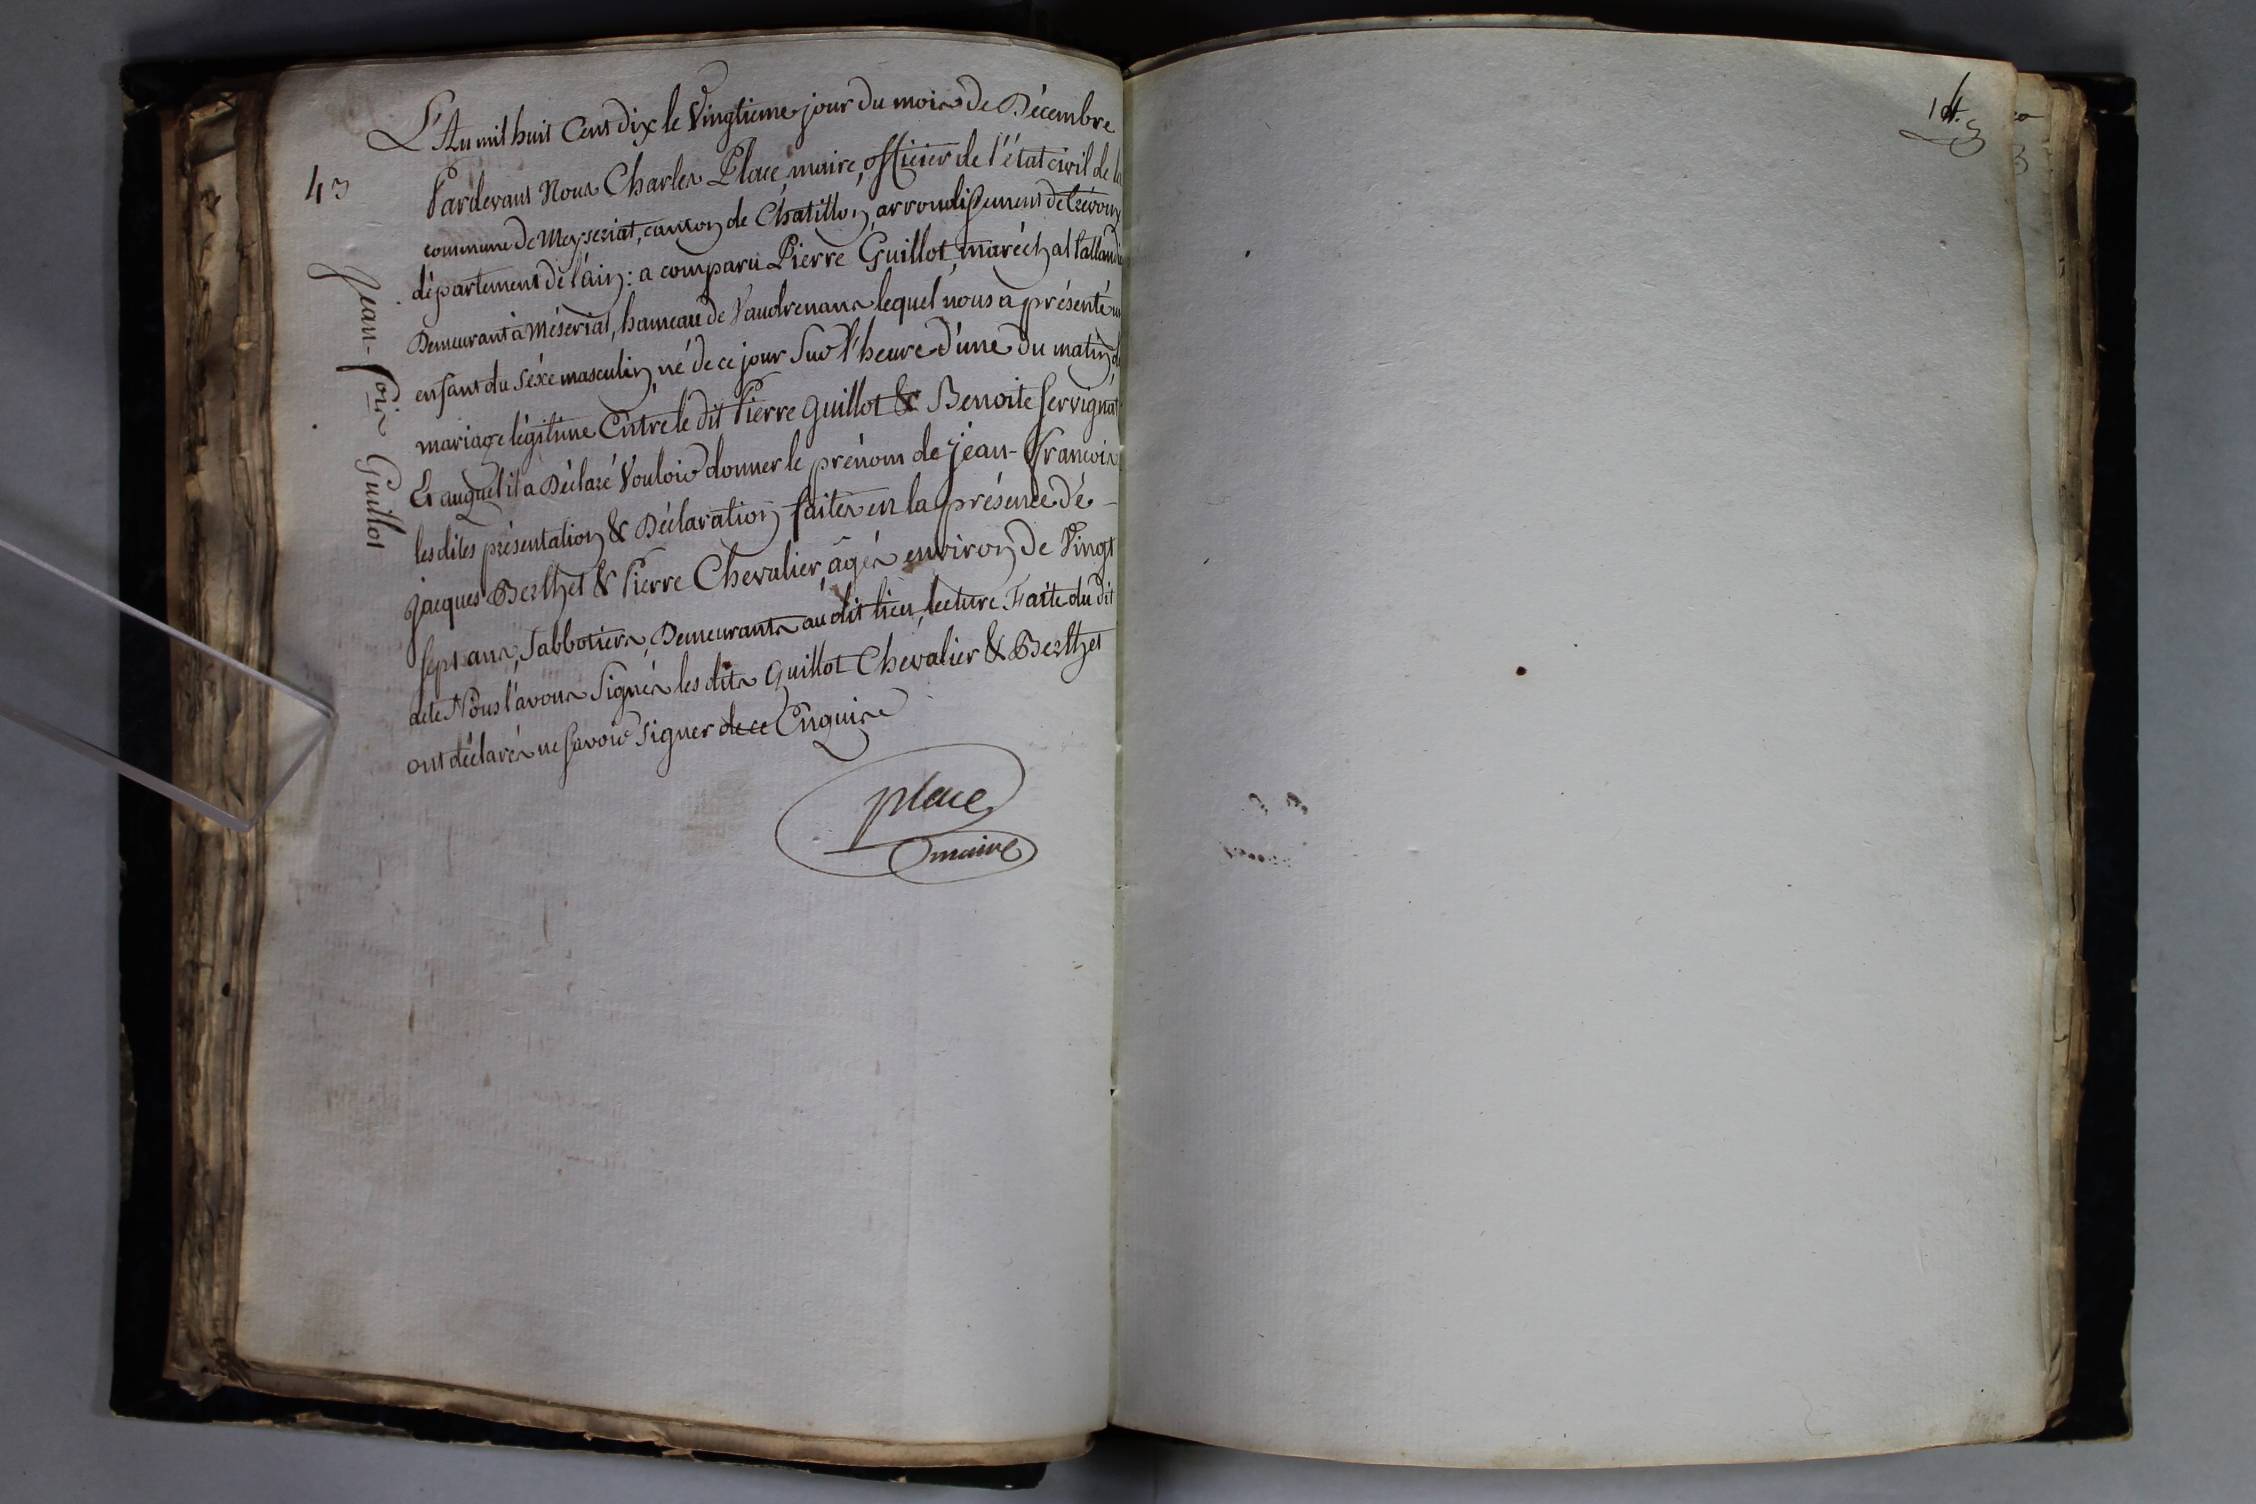 43
Jean-fois Guillot
L'An mil huit Cent dix le Vingtieme jour du mois de Décembre
Pardevant Nous Charles Place, maire, officier de l'état civil de la
commune de Meyseriat, canton de Châtillon, arrondissement de trévoux
département de l'ain : a comparu Pierre Guillot, maréchal
Demeurant à Méseriat, hameau de Vaudrenans lequel nous a présenté un
enfant du séxe masculin, né de ce jour Sur l'heure d'une du matin, de
mariage légitime Entre le dit Pierre Guillot & Benoite Servignat
Et auquel il a Déclaré Vouloir donner le prénom de jéan-François
les dites présentation & Déclaration faites en la présence dé -
jacques Berthet & Pierre Chevalier, âgés environ de Vingt
sept ans, Sabbotiers, Demeurants au dit lieu, lecture Faite du dit
acte Nous l'avons Signés les dits Guillot Chevalier & Berthet
ont déclarés ne Savoir Signer de ce Enquise
place
maire